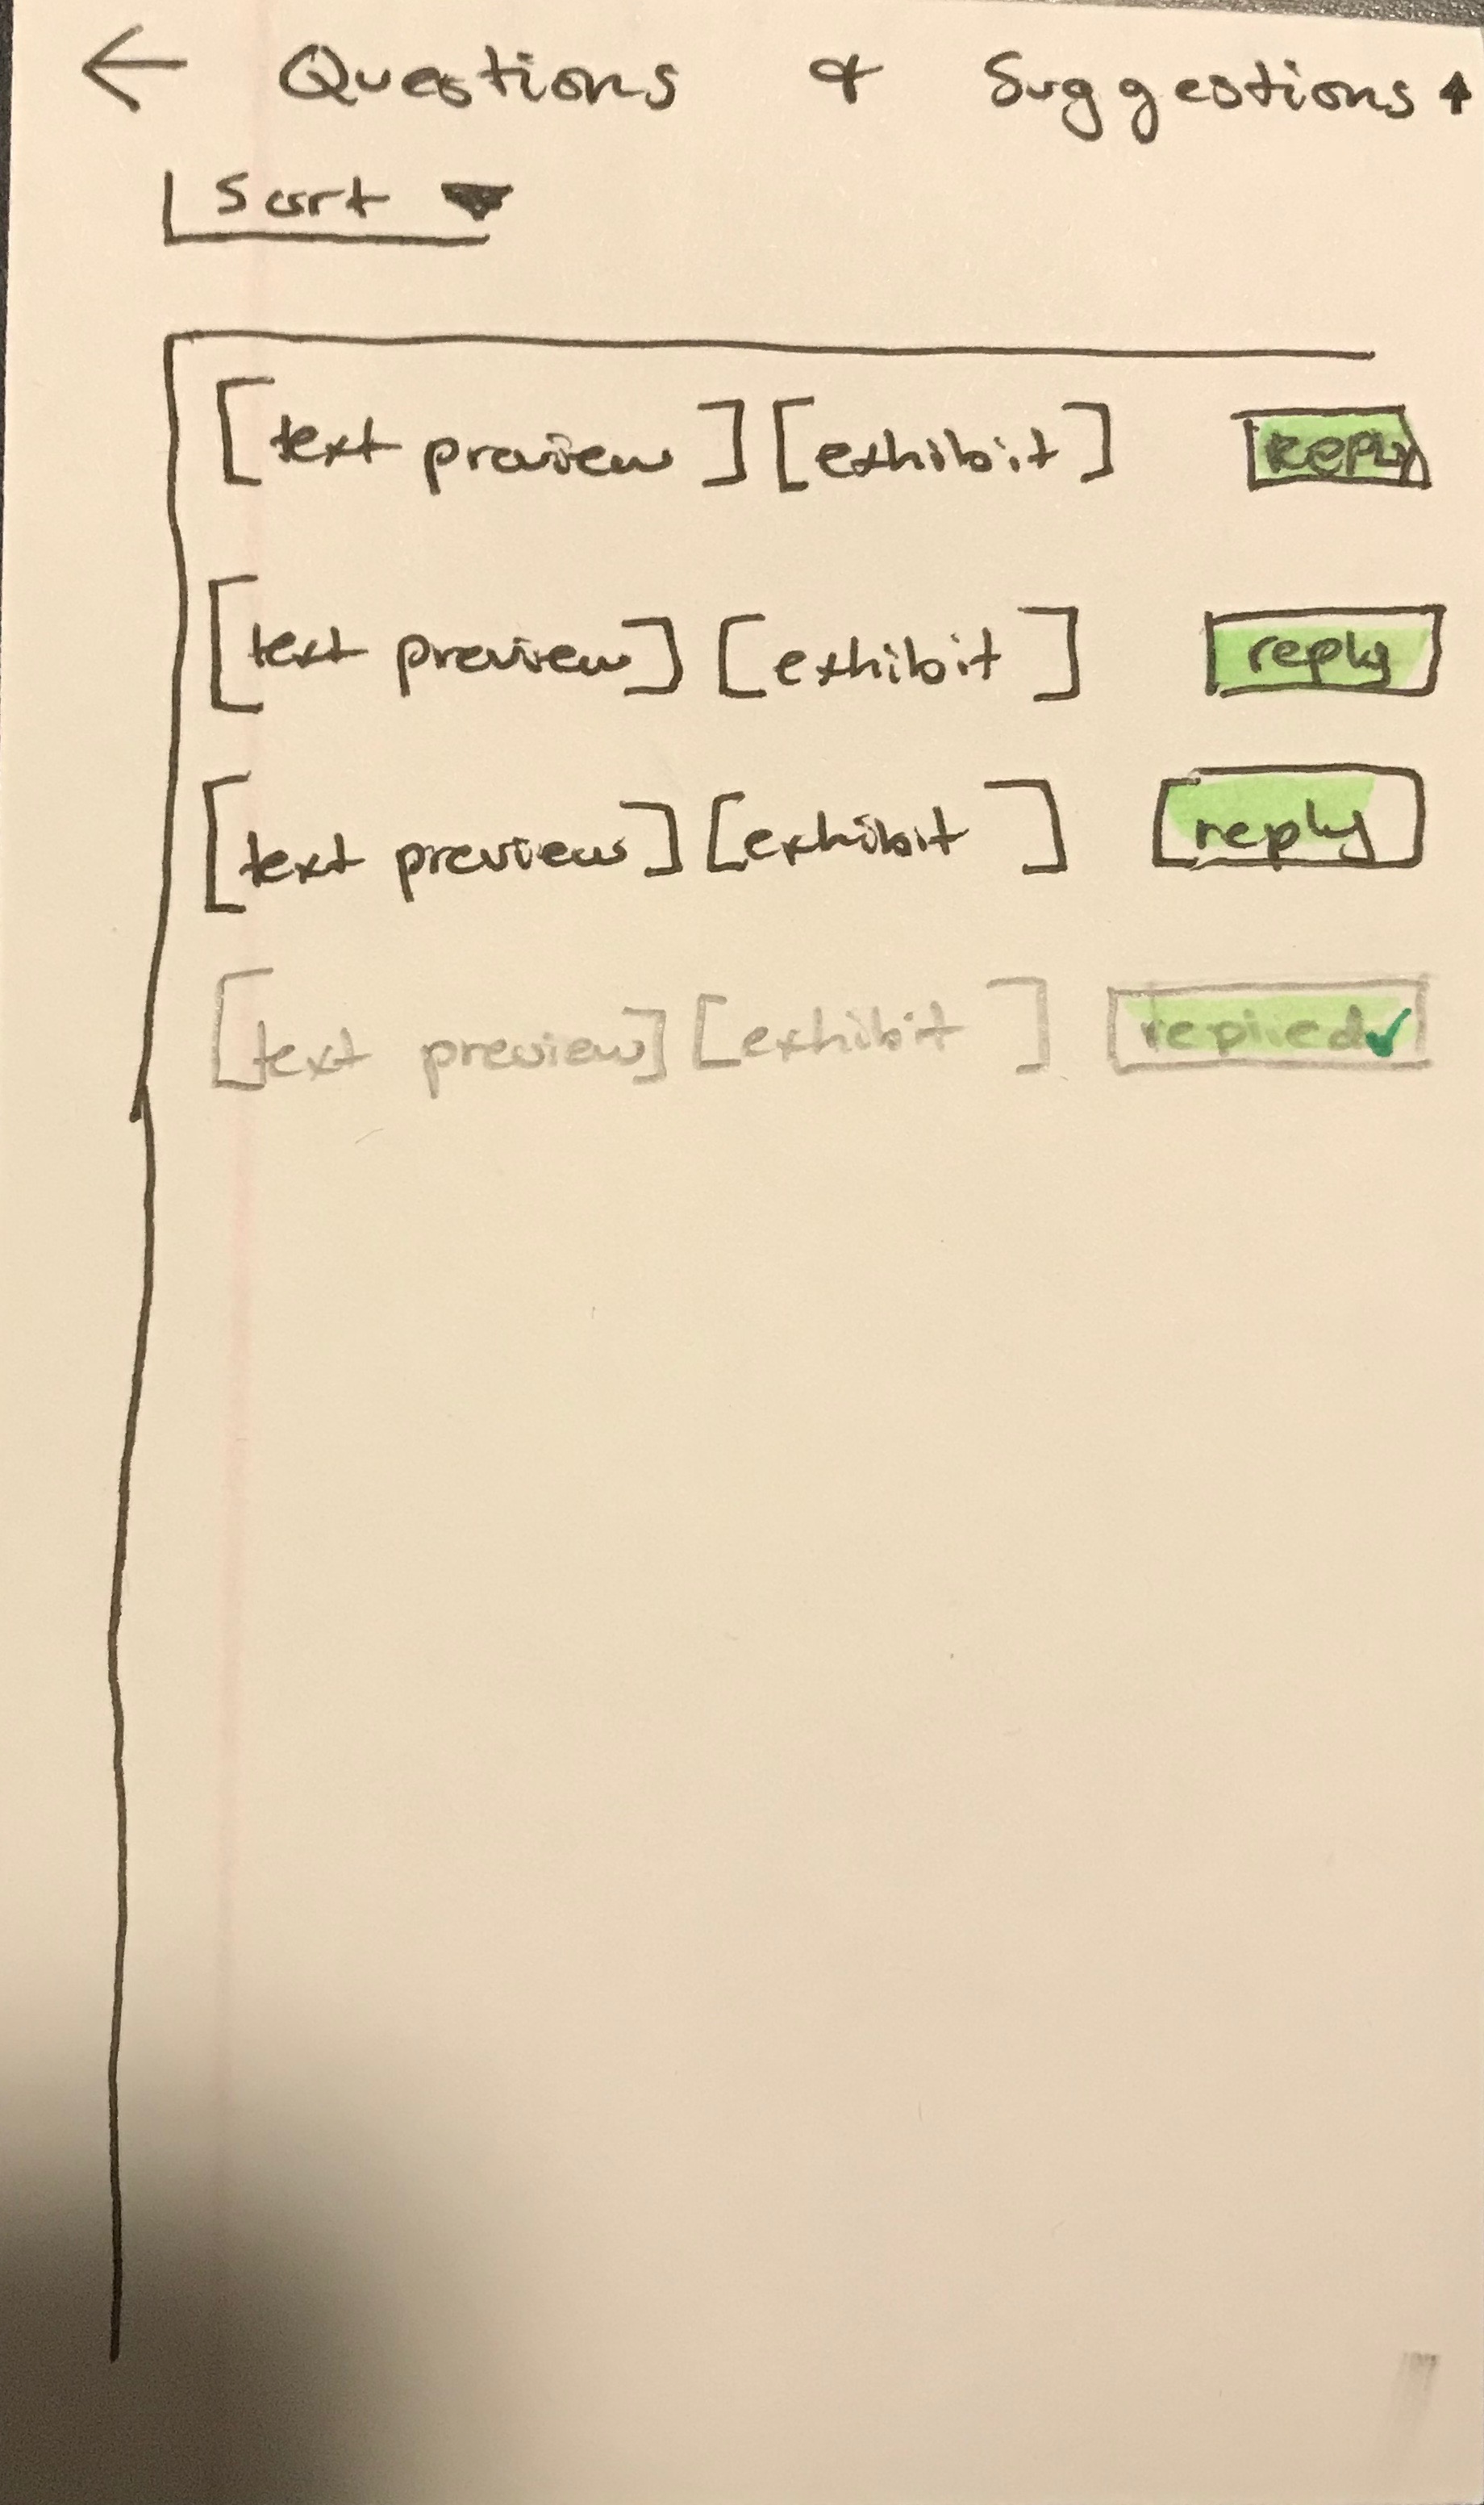 ← Questions & Suggestions
Sort
[text preview] [exhibit] reply
[text preview] [exhibit] reply
[text preview] [exhibit] reply
[text preview] [exhibit] replied✓